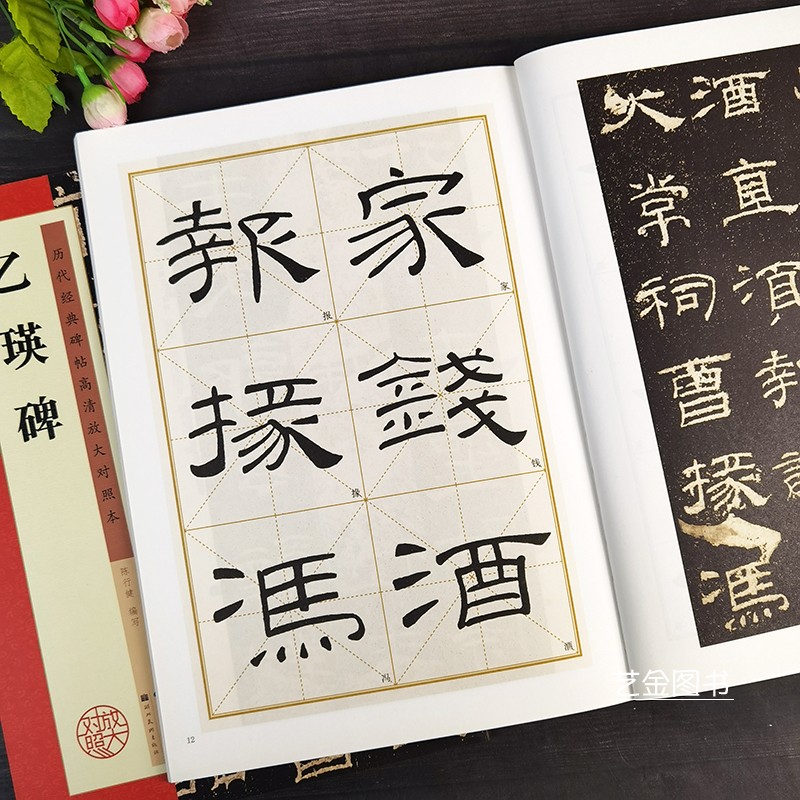 乙瑛碑
历代经典碑帖高清放大对照本
陈行健 编写
放大对照
家錢酒
報掾馮
家
钱
酒
报
掾
冯
12
酒直須
大常祠曹掾馮
艺金图书